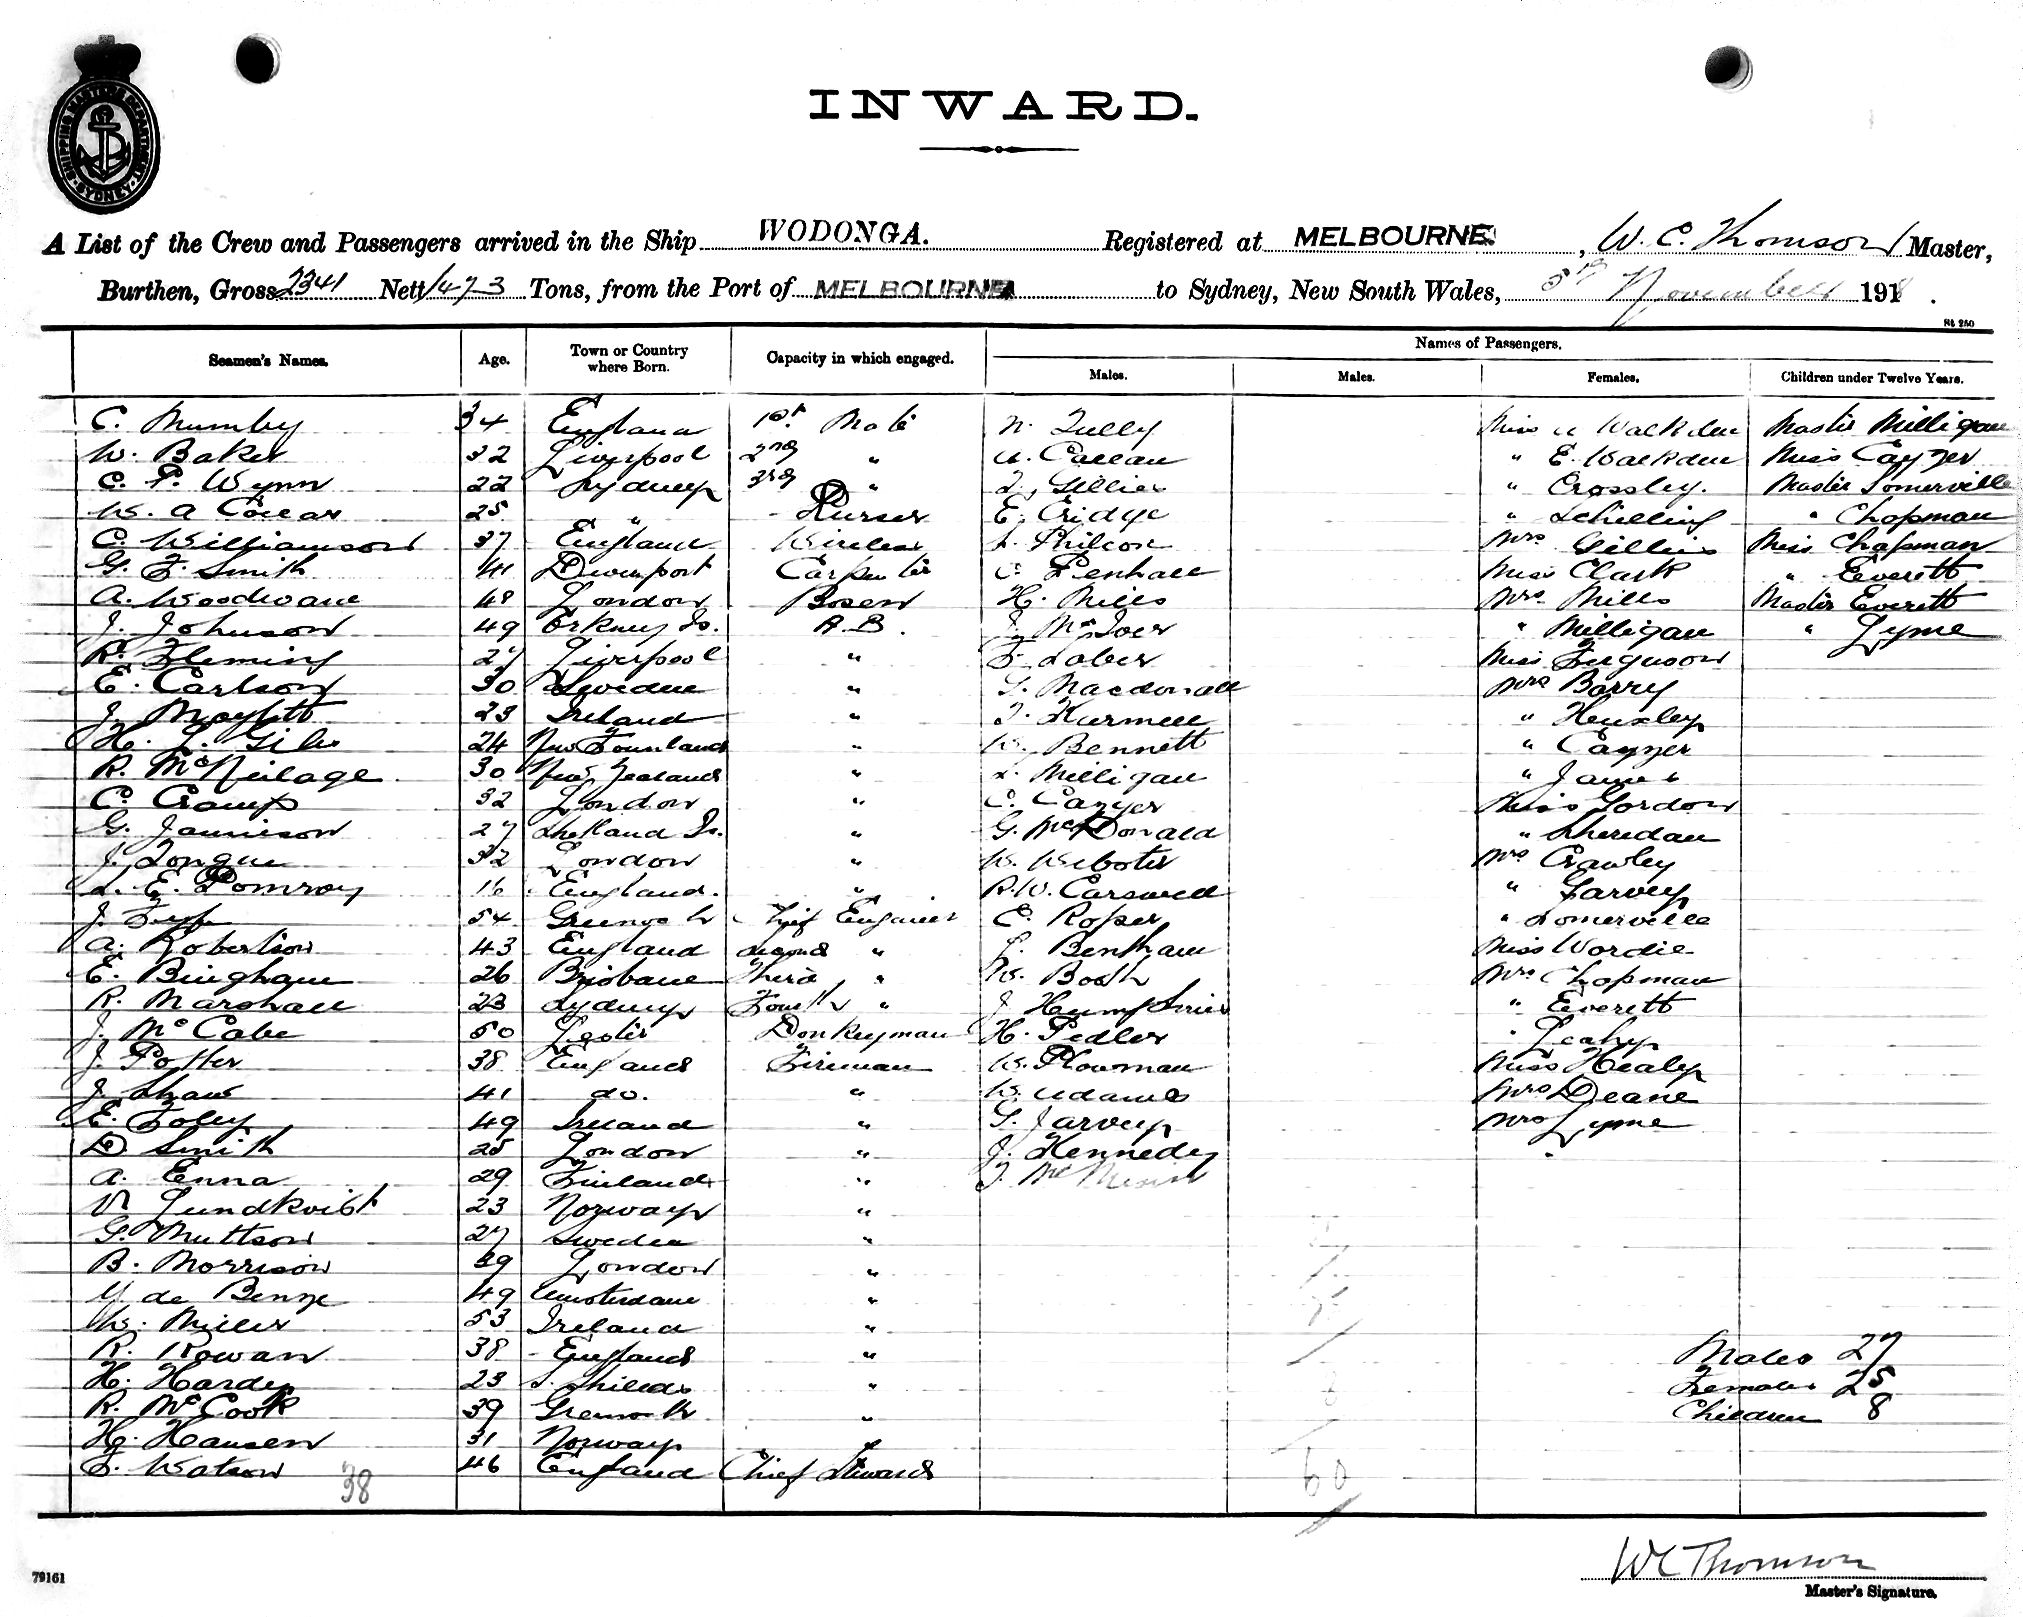 SHIPPING MASTERS DEPARTMENT. SYDNEY.
INWARD.
A List of the Crew and Passengers arrived in the Ship WODONGA. Registered at MELBOURNE, W. C. Thomson Master,
Burthen, Gross 2341 Nett 1473 Tons, from the Port of MELBOURNE to Sydney, New South Wales, November 1918.
St 250
Seamen's Names. Age. Town or Country where Born. Capacity in which engaged. Names of Passengers.
Males. Males. Females. Children under Twelve Years.
C. Mumby 34 England 1st Mate Tully Miss Walkden Master Milligan
W. Baker 32 Liverpool 2nd " Callan " E. Walkden Miss Cayzer
C. F. Wynn 22 Sydney 3rd " Gillies " Crossley. Master Somerville
W. A 25 " Purser E. Cridge " Schilling " Chapman
C. Williamson 37 England Wireless Philcox Mrs Gillies Miss Chapman
G. F. Smith 41 Devenport Carpenter C. Penhall Miss Clark " Everett
A. Woodward 48 London Bosen H. Mills Mrs Mills Master Everett
J. Johnson 49 Orkney Is. A.B. J. " Milligan " Lyme
R. Fleming 27 Liverpool " F. Miss Ferguson
E. Carlson 30 Sweden " Macdonald Mrs Barry
J. 23 Ireland " " Henxley
H. L. Giles 24 New Founland " W. Bennett " Cayzer
R. McNeilage 30 New Zealand " L. Milligan " James
C. Cramp 32 London " C. Cayzer Miss Gordon
G. Jamieson 27 Shetland Is. " G. McDonald " Sheridan
J. Tongue 32 London " W. Webster Mrs Crawley
L. E. Pomroy 16 England. " R.W. Carswell " Garvey
J. Fyfe 54 Greenock Chief Engineer E. Roper " Somerville
A. Robertson 43 England Second " Bentham Miss Wordie
E. Bingham 26 Brisbane Third " W. Booth Mrs Chapman
R. Marshall 23 Sydney Fourth " J. Humphries " Everett
J. McCabe 50 Lester Donkeyman H. Pedler " Leahy
J. Potter 38 England Fireman W. Plowman Miss Healy
J. Shaw 41 do. " W. Adams Mrs Deane
E. Foley 49 Ireland " G. Jarvey Mrs Lyme
D Smith 25 London " J. Kennedy
A. Enna 29 Finland "
Lundkvist 23 Norway "
G. Muttson 27 Sweden "
B. Morrison 39 London "
de Benze 49 Amsterdam "
W. Miller 53 Ireland "
R. Rowan 38 England " Males 27
H. Hardy 23 S. Shields " Females 25
R. McCook 39 Greenock " Children 8
H. Hansen 31 Norway "
F. Watson 46 England Chief Steward 60
38
W C Thomson
79161
Master's Signature.